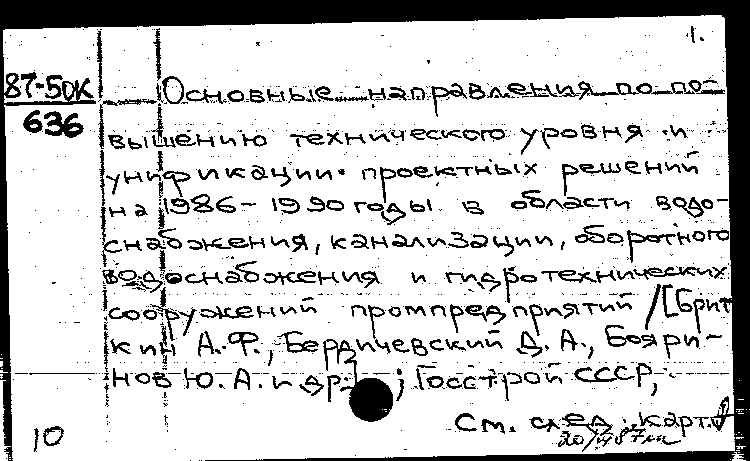 1.
87-50К
636
Основные направления по по-
вышению технического уровня и
унификации проектных решений
на 1986-1990 годы в области водо-
снабжения, канализации, оборотного
водоснабжения и гидротехнических
сооружений промпредприятий /[Брит
кин А.Ф., Бердичевский Д.А., Бояри-
нов Ю.А. и др.] ; Госстрой СССР,
См. след. карт.
10